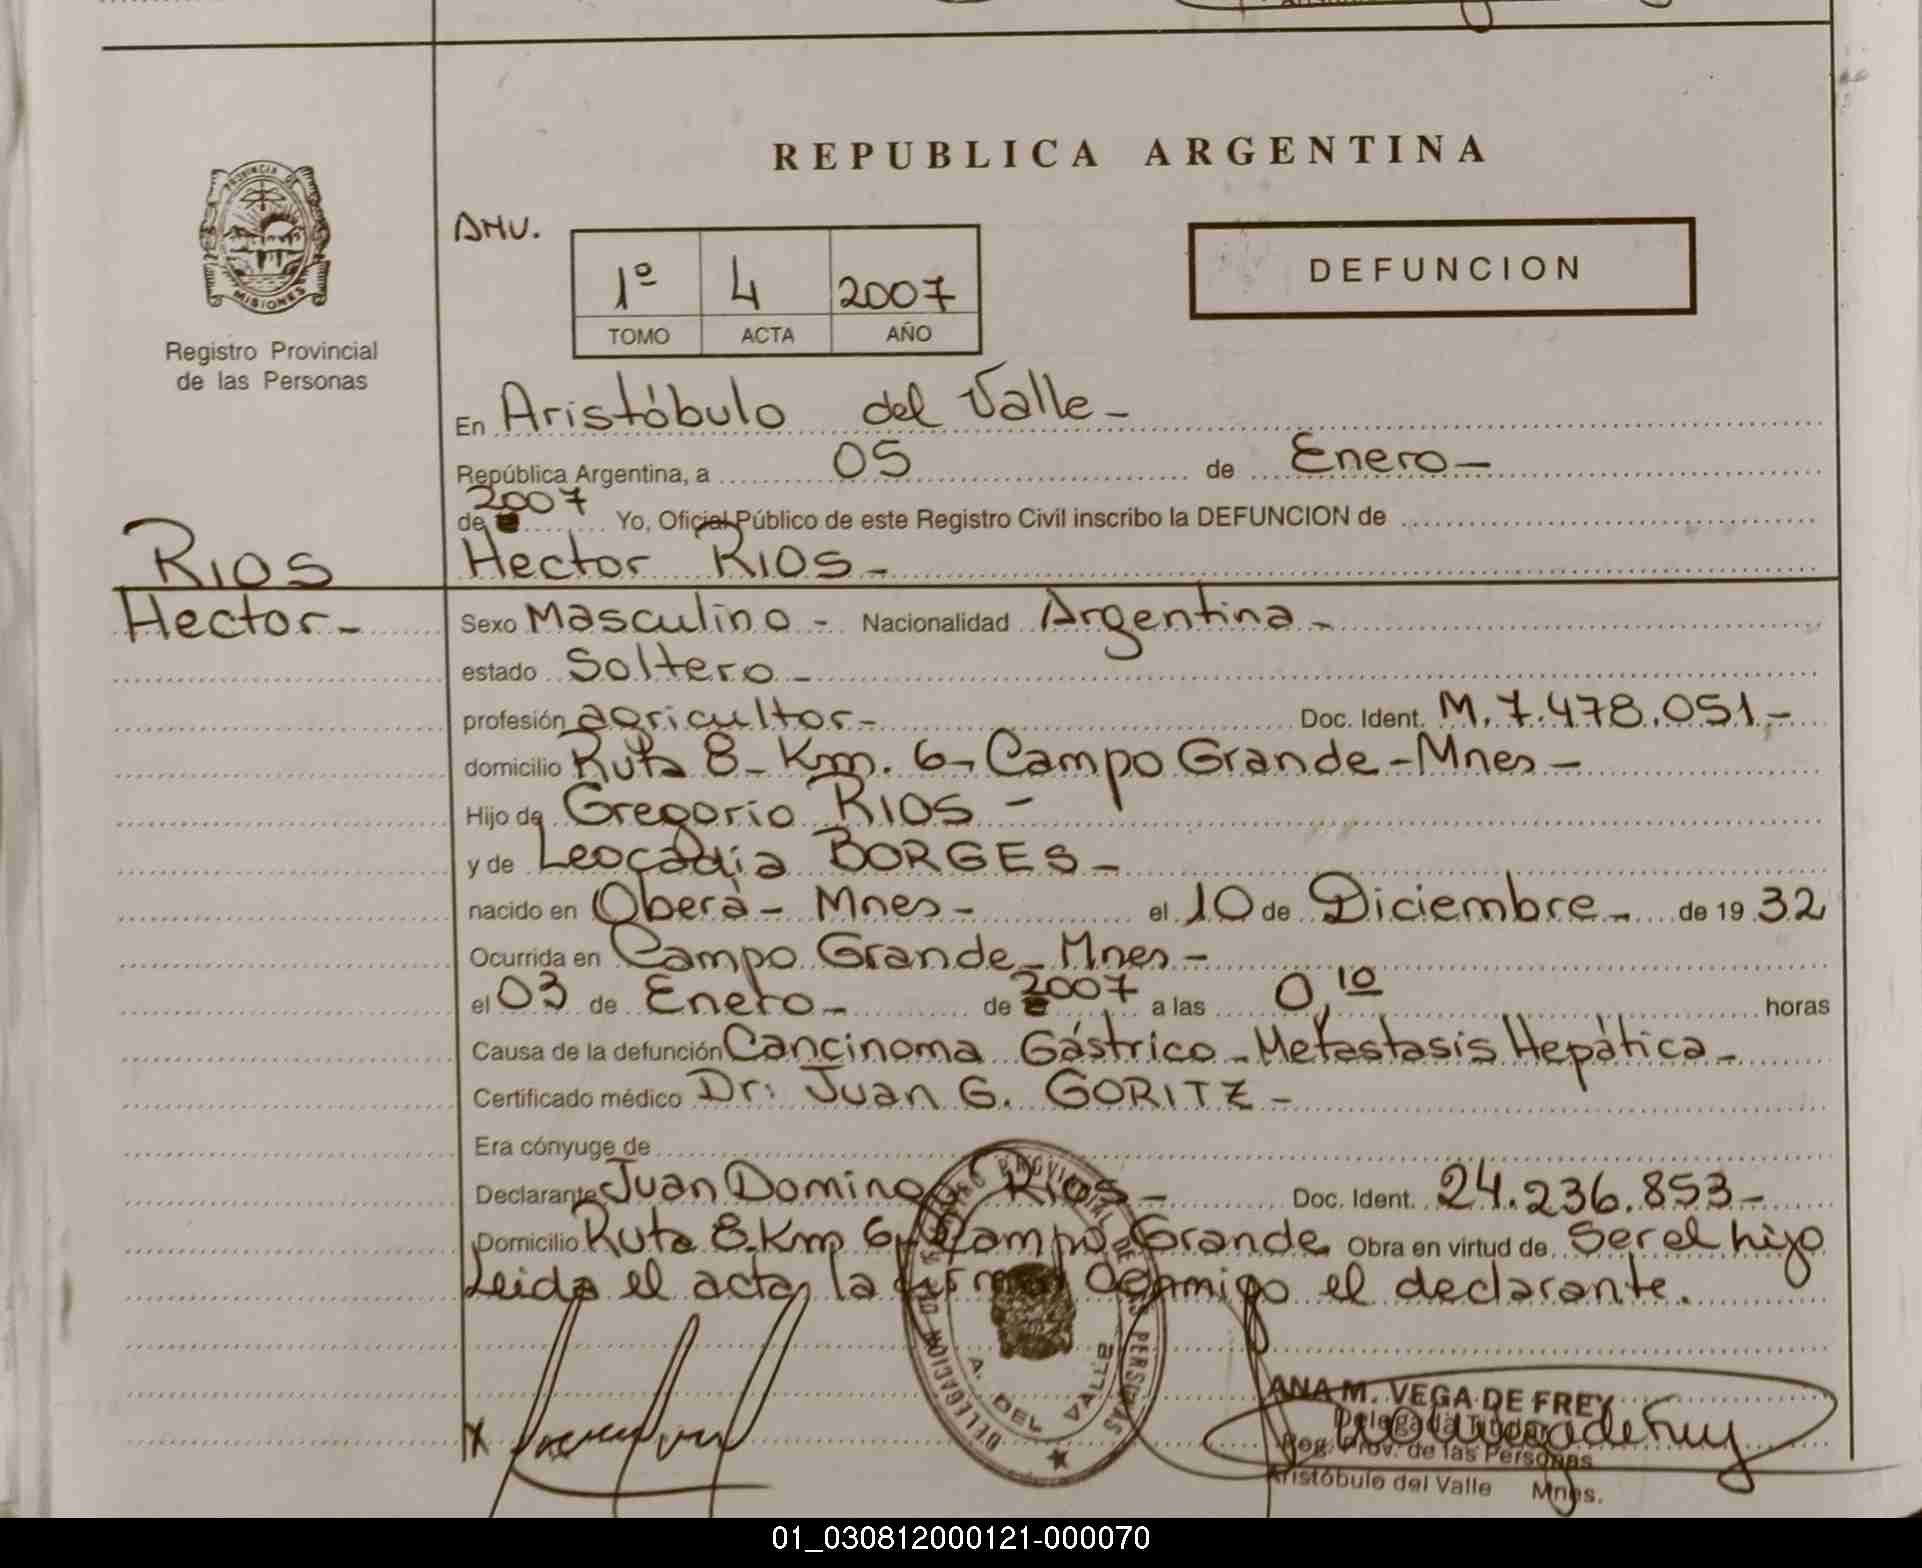 REPUBLICA ARGENTINA
PROVINCIA DE
MISIONES
Registro Provincial
de las Personas
1º 4 2007
TOMO ACTA AÑO
DEFUNCION
En Aristóbulo del Valle -
República Argentina, a 05 de Enero -
de 2007 Yo, Oficial Público de este Registro Civil inscribo la DEFUNCION de
Hector RIOS -
RIOS
Hector -
Sexo Masculino - Nacionalidad Argentina -
estado Soltero -
profesión agricultor - Doc. Ident. M. 7.478.051 -
domicilio Ruta 8 - Km. 6 - Campo Grande - Mnes -
Hijo de Gregorio RIOS -
y de Leocadia BORGES -
nacido en Oberà - Mnes - el 10 de Diciembre - de 19 32
Ocurrida en Campo Grande - Mnes -
el 03 de Enero - de 2007 a las 0,10 horas
Causa de la defunción Cancinoma Gástrico - Metastasis Hepàtica -
Certificado médico Dr: Juan G. GORITZ -
Era cónyuge de
Declarante Juan Domingo Rios - Doc. Ident. 24.236.853 -
Domicilio Ruta 8 - Km 6 - Campo Grande Obra en virtud de Ser el hijo
Leida el acta, la firma conmigo el declarante.
REGISTRO PROVINCIAL DE LAS PERSONAS
DELEGACION
A. DEL VALLE
ANA M. VEGA DE FREY
Delegada Titular
Reg. Prov. de las Personas
Aristóbulo del Valle Mnes.
01_030812000121-000070